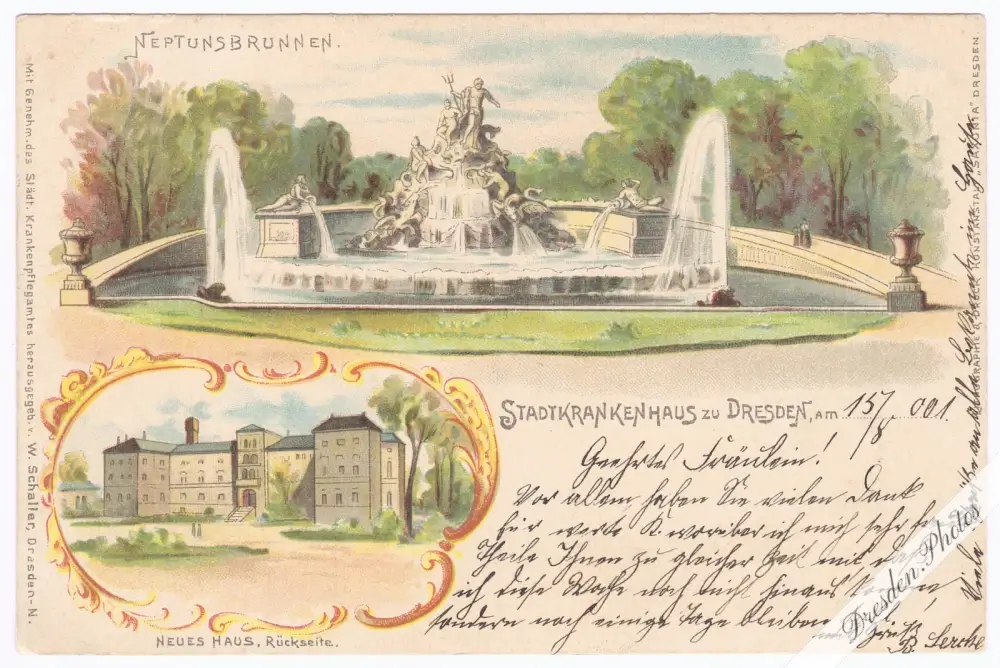 NEPTUNSBRUNNEN.
Mit Genehm. des Städt. Krankenpflegamtes herausgegeb. v. W. Schaller, Dresden-N.
"SAXONIA" DRESDEN
STADTKRANKENHAUS ZU DRESDEN, am 15/8 001.
Geehrtes Fräulein!
Vor allem haben Sie vielen Dank
für werte K. worüber ich mich sehr
Theile Ihnen zu gleicher Zeit mit
ich diese Woche noch nicht hinaus
sondern noch einige Tage bleiben
Gruß
B. Lerche
Viele an alle Bekannte im Hause
NEUES HAUS, Rückseite.
Dresden.Photos